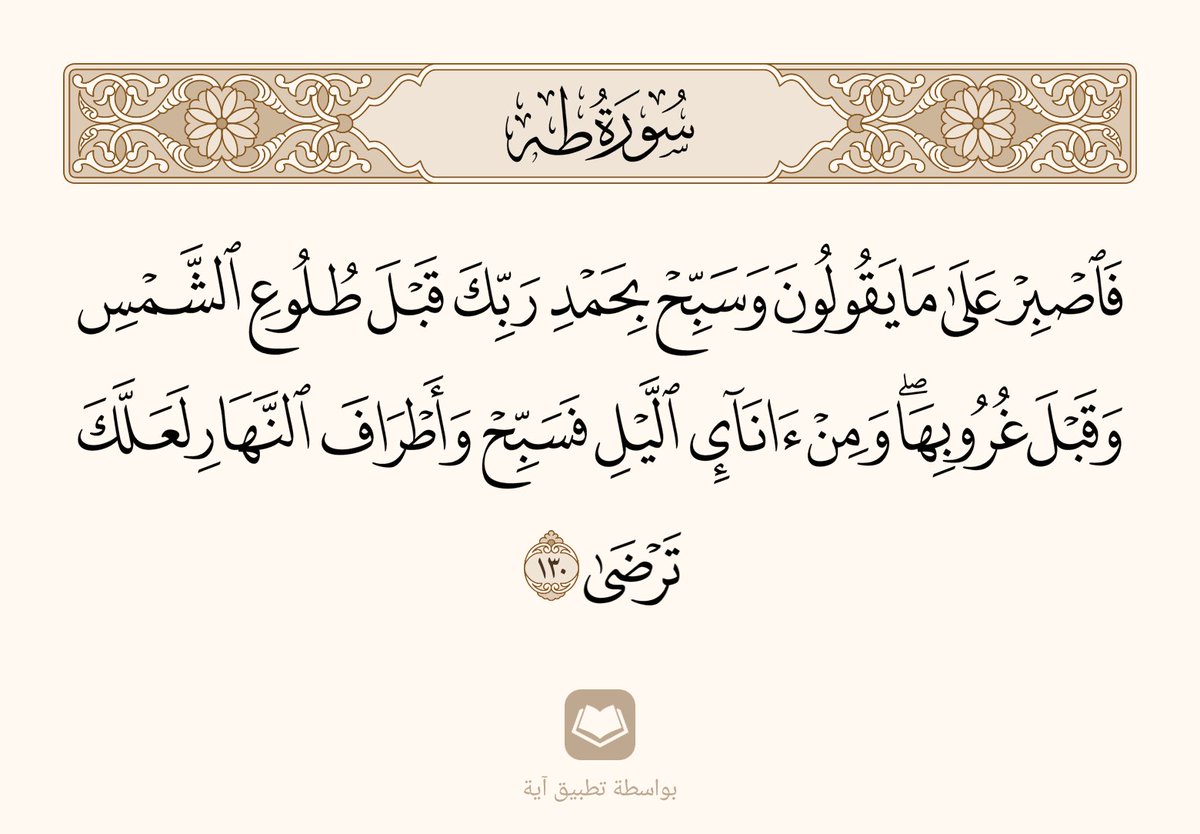 سُورَةُ طه
فَٱصۡبِرۡ عَلَىٰ مَا يَقُولُونَ وَسَبِّحۡ بِحَمۡدِ رَبِّكَ قَبۡلَ طُلُوعِ ٱلشَّمۡسِ
وَقَبۡلَ غُرُوبِهَاۖ وَمِنۡ ءَانَآيِٕ ٱلَّيۡلِ فَسَبِّحۡ وَأَطۡرَافَ ٱلنَّهَارِ لَعَلَّكَ
تَرۡضَىٰ ١٣٠
بواسطة تطبيق آية